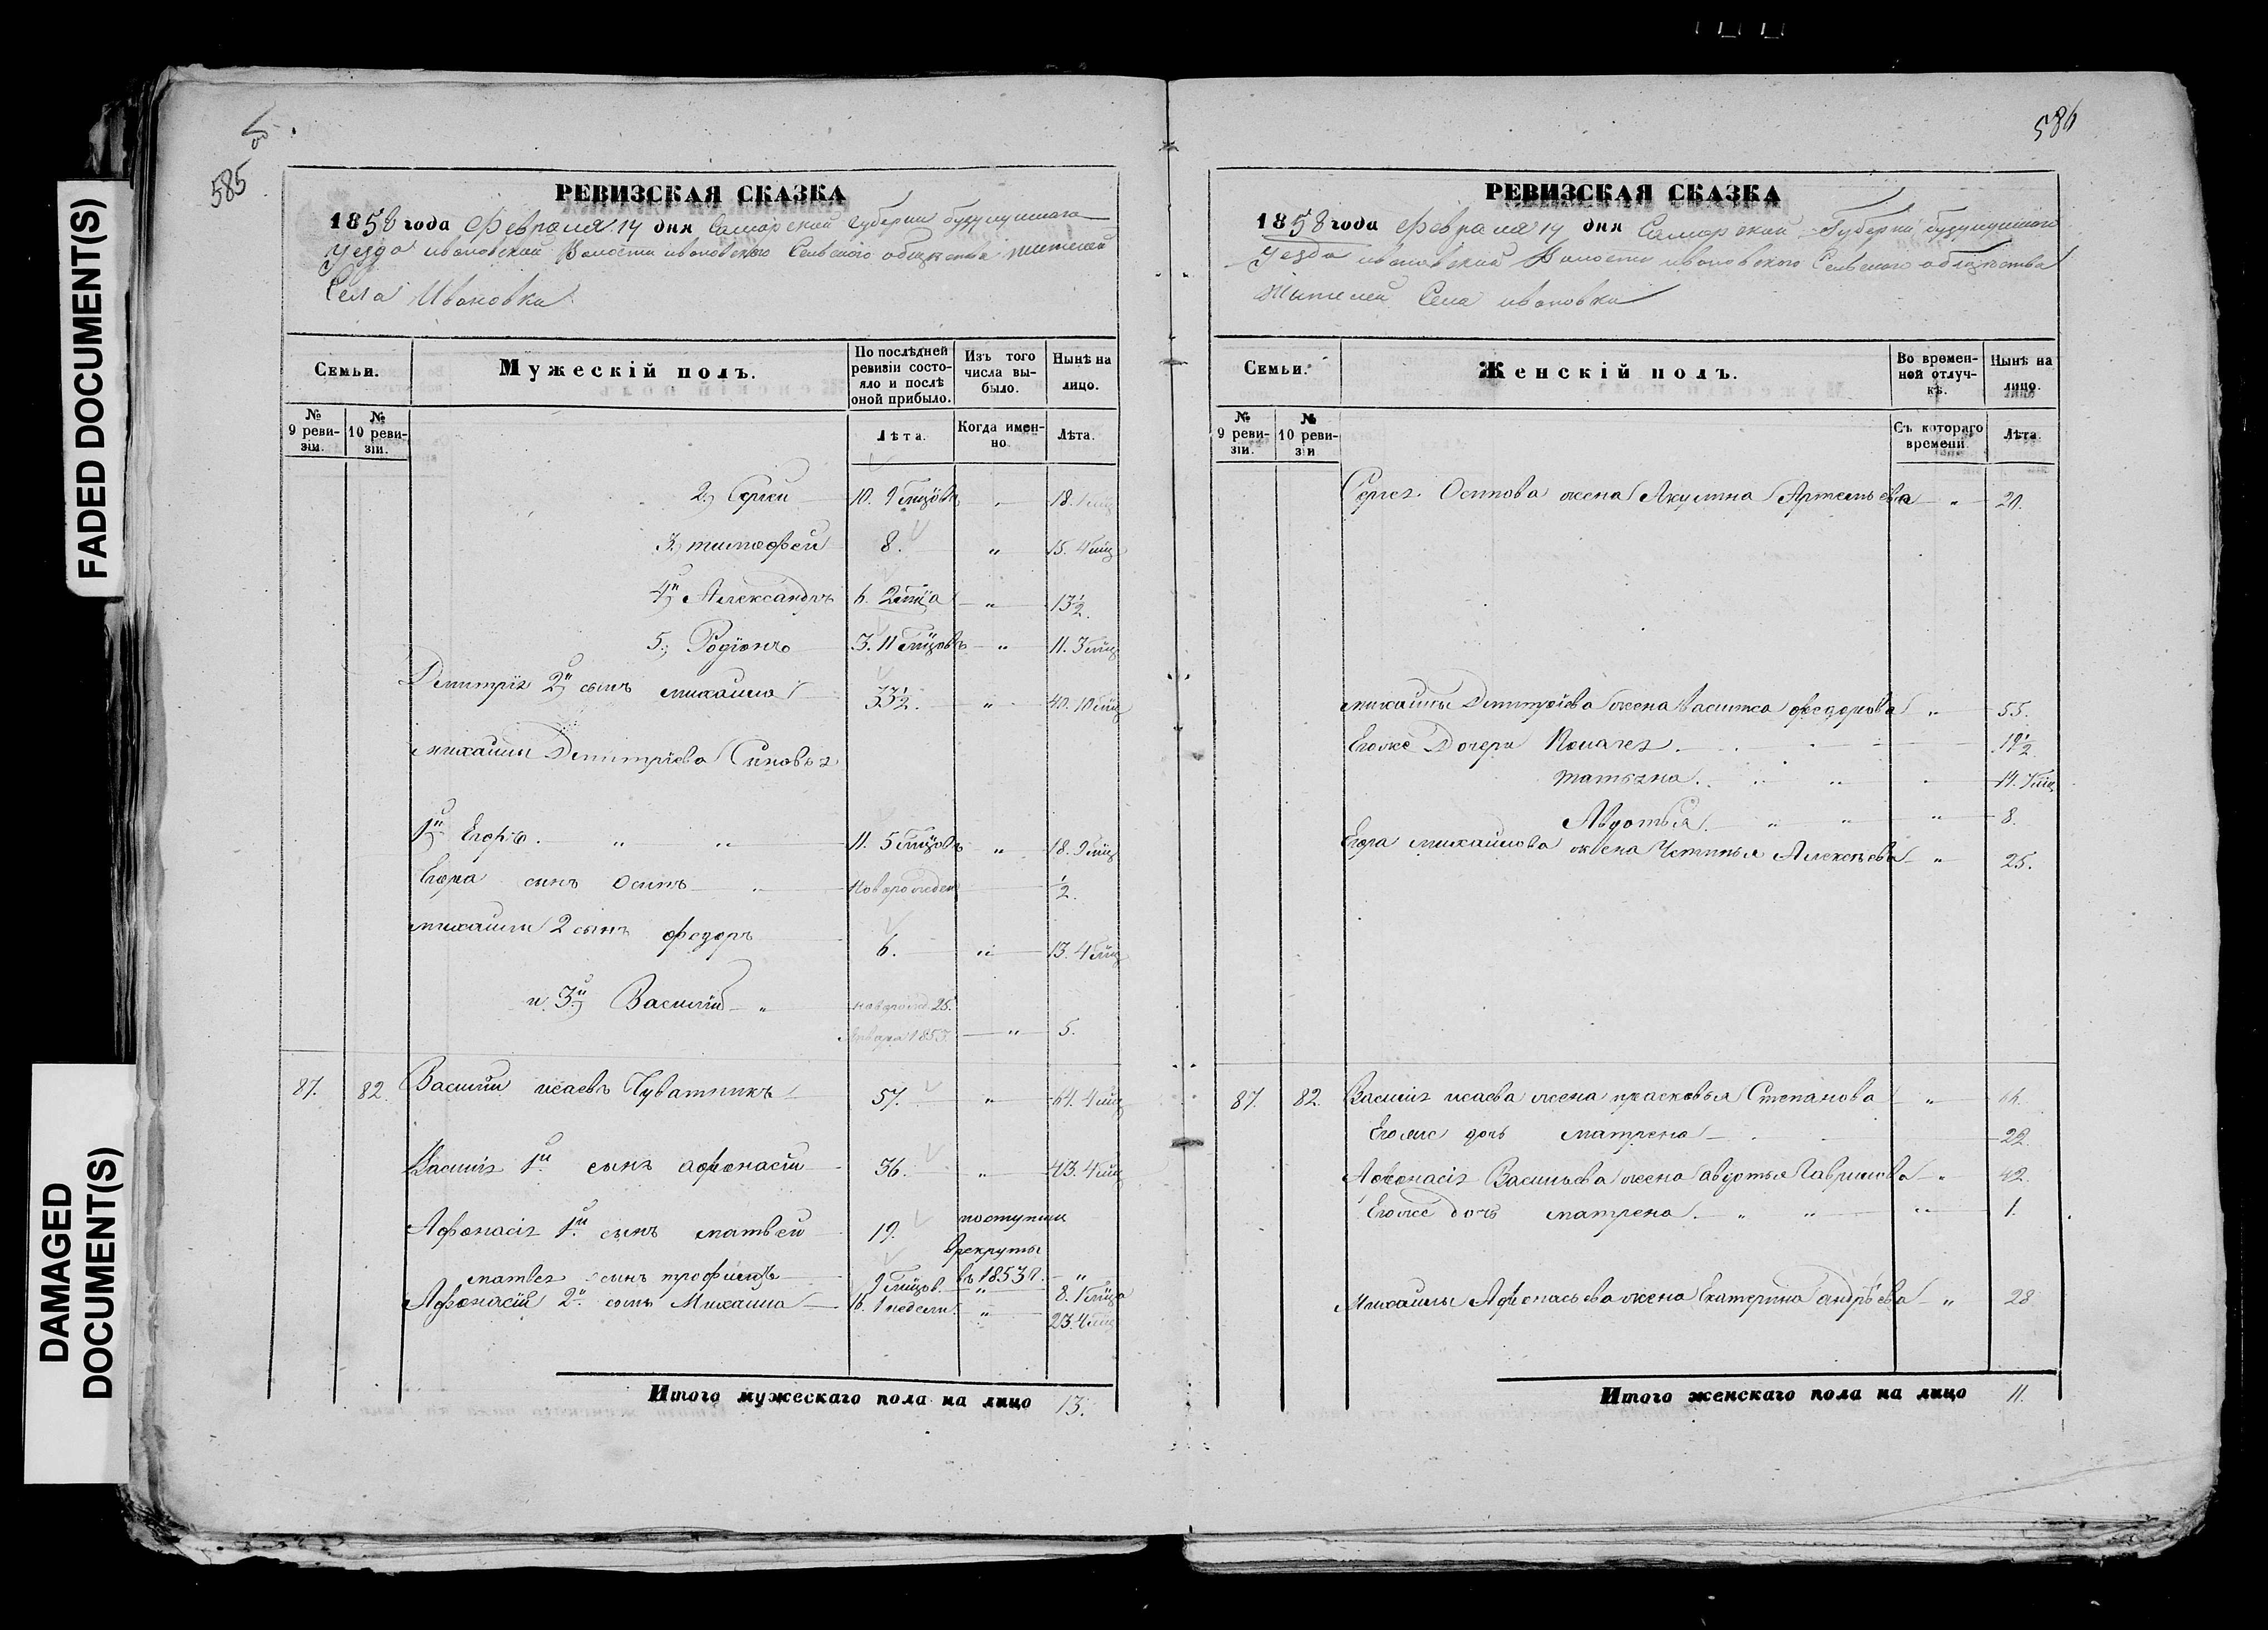 FADED DOCUMENT(S)
DAMAGED
DOCUMENT(S)
585
РЕВИЗСКАЯ СКАЗКА
1858 года Февраля 14 дня Самарской Губернии бузулуцкаго
Уезда ивановской Волости ивановского Сельского общества жителей
Села Ивановки
Семьи.
Мужескій полъ.
По послѣдней ревизіи состояло и послѣ оной прибыло.
Изъ того числа выбыло.
Нынѣ на лицо.
№ 9 ревизіи.
№ 10 ревизіи.
Лѣта.
Когда именно
Лѣта.
2й Сергей 10. 9 мцовъ 18.
3. тимофей 8. " 15. 4 мц
4й Александръ 6. 2 мца " 13½.
5. Родіонъ 3. 11 мцовъ " 11. 3 мц
Дмитрія 2й сынъ михаила 33½. " 40. 10 мц
михайлы Дмитріева Сыновья
1й Егоръ. " " 11. 5 мцовъ " 18. 9 мц
Егора сынъ Осипъ новорожден ½.
михайлы 2 сынъ федоръ 6. " 13. 4 мц
и 3й Василій " новорожд. 25.
Января 1853. " 5.
87. 82. Василій исаевъ Чуватникъ 57. " 64. 4 мц
Василія 1й сынъ афонасій 36. " 43. 4 мц
Афонасія 1й сынъ матвей 19. поступил
врекруты
матвея сынъ трофимъ 9 мцов. въ 1853 г. " 8. 1 мца
Афонасія 2й сынъ Михаила 16. 1 недели. " 23. 4 мц
Итого мужескаго пола на лицо 13.
586
РЕВИЗСКАЯ СКАЗКА
1858 года Февраля 14 дня Самарской Губерніи бузулуцкаго
Уезда ивановской Волости ивановского Сельского общества
Жителей Села ивановки
Семьи.
Женскій полъ.
Во временной отлучкѣ.
Нынѣ на лицо.
№ 9 ревизіи.
№ 10 ревизи
Съ котораго времени.
Лѣта.
Сергея Осипова жена Акулина Артемьева " 20.
михайлы Дмитріева жена Василиса федорова " 55.
Егоже Дочери Пелагея. 19½
татьяна. " " 14. 7 мц
Авдотья. " " " 8.
Егора михайлова жена Устинья Алексеева " 25.
87. 82. Василія исаева жена прасковья Степанова "
Егоже дочь матрена 22.
Афонасія Васильева жена авдотья Гаврилова " 42.
Егоже дочь матрена. " " " 1.
Михайлы Афонасьева жена Екатерина андрѣева " 28
Итого женскаго пола на лицо 11.